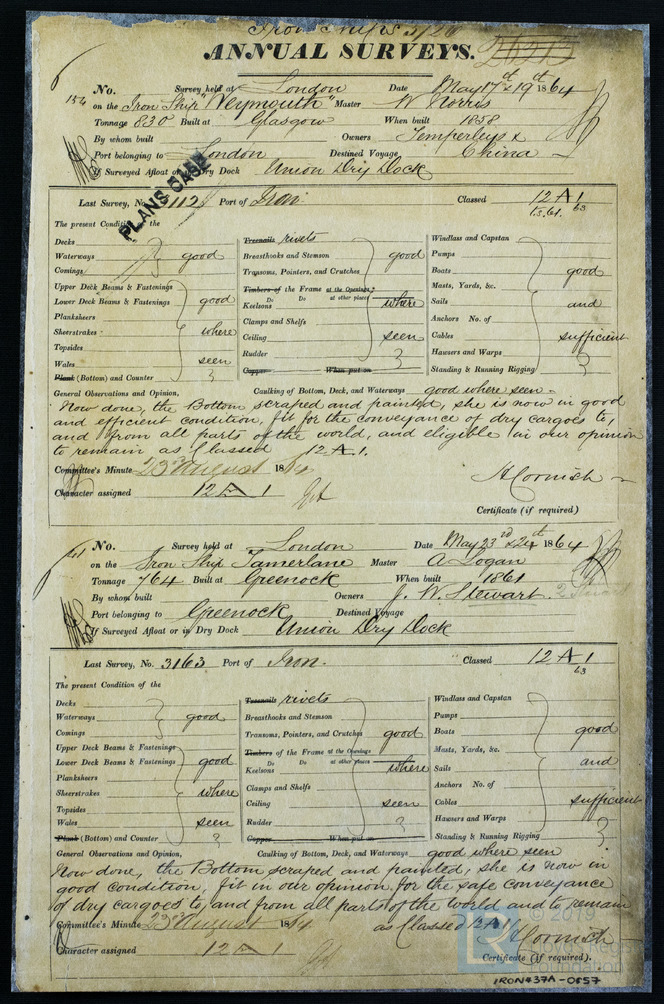 Iron Ships 3/26
ANNUAL SURVEYS.
154 No. Survey held at London Date May 17th & 19th 1864
on the Iron Ship "Weymouth" Master W Norris
Tonnage 830 Built at Glasgow When built 1858
By whom built Owners Temperleys &
Port belonging to London Destined Voyage China
If Surveyed Afloat or in Dry Dock Union Dry Dock
PLANS CASE
Last Survey, No. 112 Port of Iron. Classed 12 A 1
15.61. 63
The present Condition of the
Decks
Waterways good
Comings
Upper Deck Beams & Fastenings
Lower Deck Beams & Fastenings good
Planksheers
Sheerstrakes where
Topsides
Wales seen
Plank (Bottom) and Counter
Treenails rivets
Breasthooks and Stemson good
Transoms, Pointers, and Crutches
Timbers of the Frame at the Openings
Do Do at other places where
Keelsons
Clamps and Shelfs
Ceiling seen
Rudder
Copper When put on
Windlass and Capstan
Pumps
Boats good
Masts, Yards, &c.
Sails and
Anchors No. of
Cables sufficient
Hawsers and Warps
Standing & Running Rigging
General Observations and Opinion, Caulking of Bottom, Deck, and Waterways good where seen.
Now done, the Bottom scraped and painted, she is now in good
and efficient condition, fit for the conveyance of dry cargoes to,
and from all parts of the world, and eligible in our opinion
to remain as Classed 12 A 1.
Committee's Minute 23rd August 1864
Character assigned 12 A 1
A Cornish
Certificate (if required)
No. Survey held at London Date May 23rd & 24th 1864
on the Iron Ship Tamerlane Master A Logan
Tonnage 764 Built at Greenock When built 1861
By whom built Owners J. W. Stewart
Port belonging to Greenock Destined Voyage
If Surveyed Afloat or in Dry Dock Union Dry Dock
Last Survey, No. 3163 Port of Iron. Classed 12 A 1
63
The present Condition of the
Decks
Waterways good
Comings
Upper Deck Beams & Fastenings
Lower Deck Beams & Fastenings good
Planksheers
Sheerstrakes where
Topsides
Wales seen
Plank (Bottom) and Counter
Treenails rivets
Breasthooks and Stemson
Transoms, Pointers, and Crutches good
Timbers of the Frame at the Openings
Do Do at other places where
Keelsons
Clamps and Shelfs
Ceiling seen
Rudder
Copper When put on
Windlass and Capstan
Pumps
Boats good
Masts, Yards, &c.
Sails and
Anchors No. of
Cables sufficient
Hawsers and Warps
Standing & Running Rigging
General Observations and Opinion, Caulking of Bottom, Deck, and Waterways good where seen
Now done, the Bottom scraped and painted, she is now in
good condition, fit in our opinion, for the safe conveyance
of dry cargoes to, and from all parts of the world and to remain
Committee's Minute 23rd August 1864 as Classed 12 A 1
Character assigned 12 A 1
A Cornish
Certificate (if required).
© 2019
Foundation
IRON437A-0557